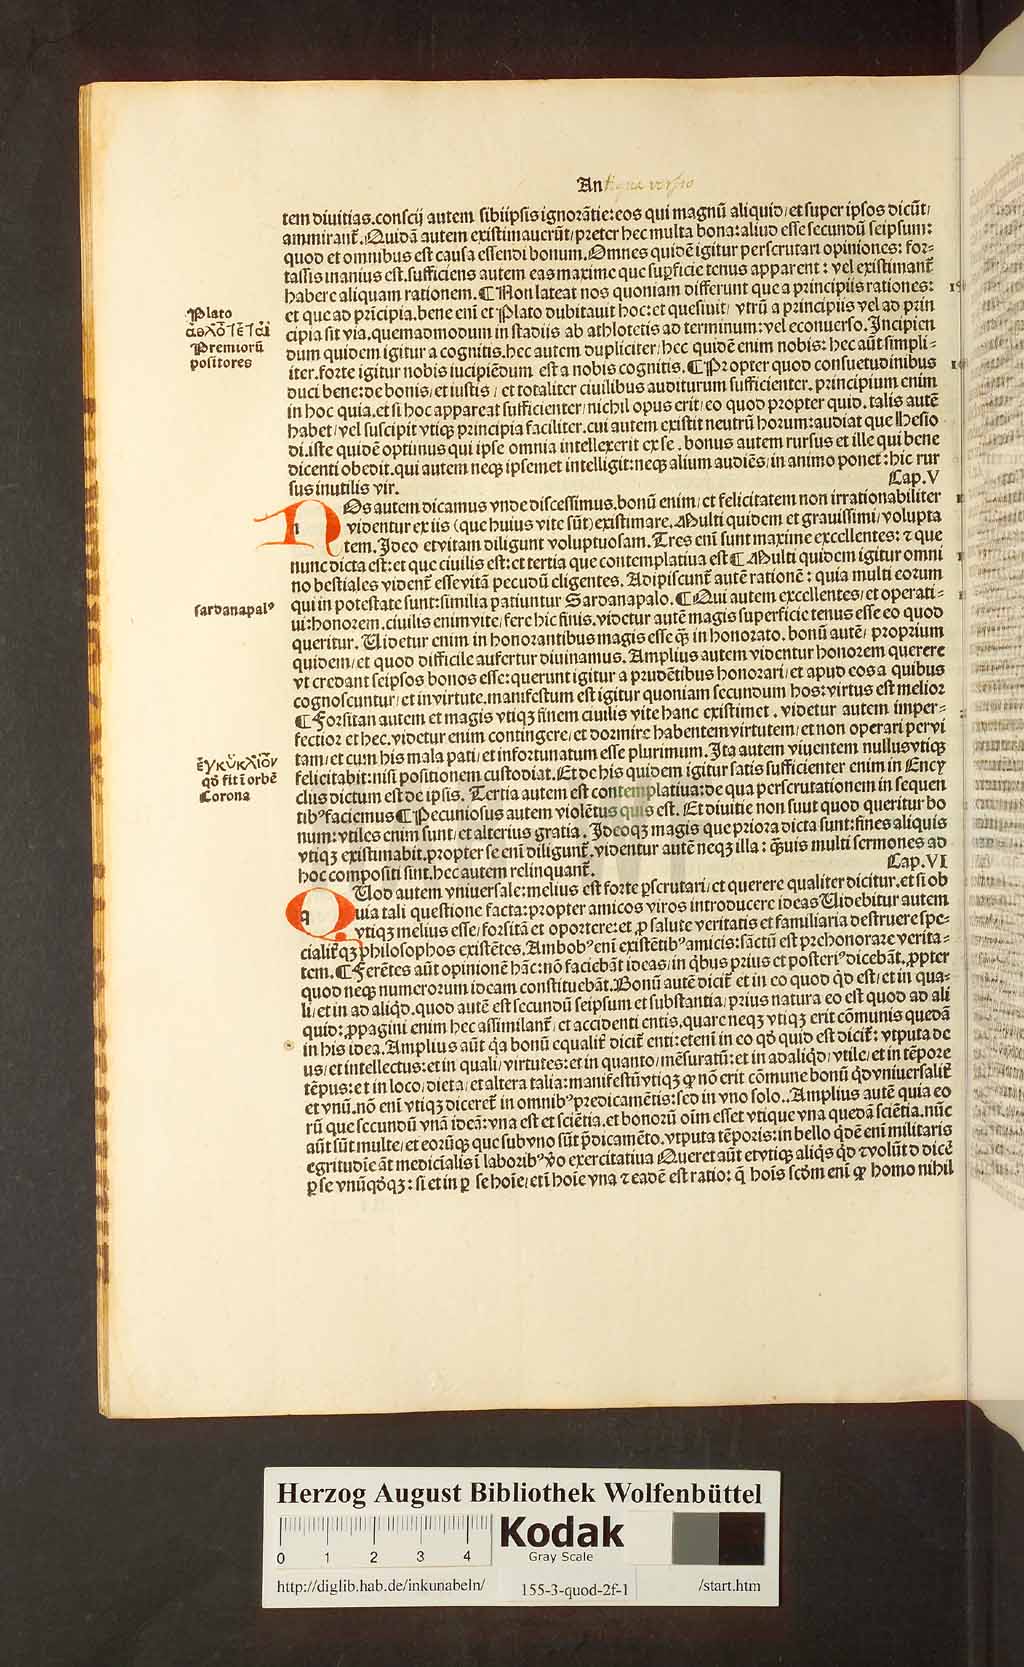 Antiqua versio
tem diuitias.conscij autem sibiipsis ignorãtie:eos qui magnũ aliquid/et super ipsos dicũt/
ammirant᷑.Quidã autem existimauerũt/preter hec multa bona:aliud esse secundũ seipsum:
quod et omnibus est causa essendi bonum.Omnes quidẽ igitur perscrutari opiniones: for⸗
tassis inanius est.sufficiens autem eas maxime que suꝑficie tenus apparent: vel existimant᷑
habere aliquam rationem.¶Non lateat nos quoniam differunt que a principiis rationes:
et que ad prĩcipia.bene enĩ et Plato dubitauit hoc:et quesiuit/ vtrũ a principiis vel ad prin
cipia sit via.quemadmodum in stadijs ab athlotetis ad terminum:vel econuerso.Incipien
dum quidem igitur a cognitis.hec autem dupliciter/hec quidẽ enim nobis: hec aũt simpli⸗
iter.forte igitur nobis iucipiẽdum est a nobis cognitis.¶Propter quod consuetudinibus
duci bene:de bonis/et iustis/ et totaliter ciuilibus auditurum sufficienter. principium enim
in hoc quia.et si hoc appareat sufficienter/nichil opus erit/eo quod propter quid. talis autẽ
habet/vel suscipit vtiqꝫ principia faciliter.cui autem existit neutrũ horum:audiat que Hesio
di.iste quidẽ optimus qui ipse omnia intellexerit ex se. bonus autem rursus et ille qui bene
dicenti obedit.qui autem neqꝫ ipsemet intelligit:neqꝫ alium audiẽs/in animo ponet:hic rur
sus inutilis vir.
Cap.V
NOs autem dicamus vnde discessimus.bonũ enim/et felicitatem non irrationabiliter
videntur ex iis (que huius vite sũt) existimare.Multi quidem et grauissimi/volupta
tem.Ideo et vitam diligunt voluptuosam.Tres enĩ sunt maxime excellentes: ⁊ que
nunc dicta est:et que ciuilis est:et tertia que contemplatiua est¶Multi quidem igitur omni
no bestiales vident᷑ esse vitã pecudũ eligentes.Adipiscunt᷑ autẽ rationẽ: quia multi eorum
qui in potestate sunt:similia patiuntur Sardanapalo.¶Qui autem excellentes/et operati⸗
ui:honorem.ciuilis enim vite/fere hic finis.videtur autẽ magis superficie tenus esse eo quod
queritur. Uidetur enim in honorantibus magis esse qꝫ̃ in honorato.bonũ autẽ/ proprium
quidem/et quod difficile aufertur diuinamus.Amplius autem videntur honorem querere
vt credant seipsos bonos esse:querunt igitur a prudẽtibus honorari/et apud eos a quibus
cognoscuntur/et in virtute.manifestum est igitur quoniam secundum hos:virtus est melior
¶Forsitan autem et magis vtiqꝫ finem ciuilis vite hanc existimet. videtur autem imper⸗
fectior et hec.videtur enim contingere/et dormire habentem virtutem/et non operari per vi
tam/et cum his mala pati/et infortunatum esse plurimum.Ita autem viuentem nullus vtiqꝫ
felicitabit:nisi positionem custodiat.Et de his quidem igitur satis sufficienter enim in Ency
clius dictum est de ipsis. Tertia autem est contemplatiua:de qua perscrutationem in sequen
tib⁹ faciemus¶Pecuniosus autem violẽtus quis est. Et diuitie non suut quod queritur bo
num:vtiles enim sunt/et alterius gratia. Ideoqꝫ magis que priora dicta sunt:fines aliquis
vtiqꝫ existimabit.propter se enĩ diligunt᷑.videntur autẽ neqꝫ illa: qꝫ̃uis multi sermones ad
hoc compositi sint.hec autem relinquant᷑.
Cap.VI
QUod autem vniuersale:melius est forte ꝑscrutari/et querere qualiter dicitur.et si ob
quia tali questione facta:propter amicos viros introducere ideas Uidebitur autem
vtiqꝫ melius esse/forsitã et oportere:et ꝓ salute veritatis et familiaria destruere spe⸗
cialit᷑qꝫ philosophos existẽtes.Ambob⁹ enĩ existẽtib⁹ amicis:sãctũ est prehonorare verita⸗
tem.¶Ferẽtes aũt opinionẽ hãc:nõ faciebãt ideas/in q̃bus prius et posteri⁹ dicebãt.ꝓpter
quod neqꝫ numerorum ideam constituebãt.Bonũ autẽ dicit᷑ et in eo quod q̃d est/et in qua⸗
li/et in ad aliq̃d.quod autẽ est secundũ seipsum et substantia/prius natura eo est quod ad ali
quid:ꝓpagini enim hec assimilant᷑/et accidenti entis.quare neqꝫ vtiqꝫ erit cõmunis quedã
in his idea.Amplius aũt q̃a bonũ equalit᷑ dicit᷑ enti:etenĩ in eo qd̃ quid est dicit᷑: vtputa de
us/et intellectus:et in quali/virtutes:et in quanto/mẽsuratũ:et in ad aliq̃d/vtile/et in tẽpore
tẽpus:et in loco/dieta/et altera talia:manifestũ vtiqꝫ ꝙ nõ erit cõmune bonũ q̃d vniuersalit᷑
et vnũ.nõ enĩ vtiqꝫ diceret᷑ in omnib⁹ predicamẽtis:sed in vno solo..Amplius autẽ quia eo
rũ que secundũ vnã ideã:vna est et sciẽtia.et bonorũ oĩm esset vtique vna quedã sciẽtia.nũc
aũt sũt multe/et eorũqꝫ que sub vno sũt p̃dicamẽto.vtputa tẽporis:in bello q̃dẽ enĩ militaris
egritudĩe ãt medicĩalis ĩ laborib⁹ ṽo exercitatiua Queret aũt et vtiqꝫ aliq̃s q̃d ⁊ volũt d dicẽ
ꝑ se vnũqd̃qꝫ: si et in ꝑ se hoĩe/et ĩ hoĩe vna ⁊ eadẽ est ratio: q̃ hoĩs scd̃m enĩ ꝙ homo nihil
Plato
ἀθλοτεται
Premiorũ
positores
sardanapal⁹
ἐγκύκλιον
qd̃ fit ĩ orbẽ
Corona
Herzog August Bibliothek Wolfenbüttel
0 1 2 3 4
Kodak
Gray Scale
http://diglib.hab.de/inkunabeln/
155-3-quod-2f-1
/start.htm